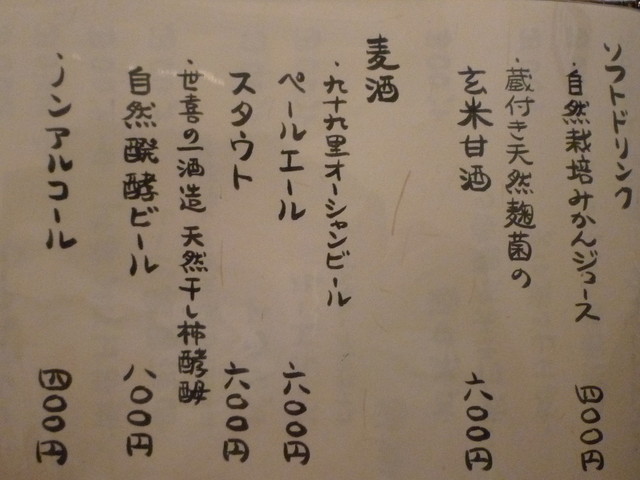 ソフトドリンク
・自然栽培みかんジュース 四〇〇円
・蔵付き天然麹菌の
玄米甘酒 六〇〇円
麦酒
・九十九里オーシャンビール
ペールエール 六〇〇円
スタウト 六〇〇円
・世喜の一酒造 天然干し柿酵母
自然醗酵ビール 八〇〇円
・ノンアルコール 四〇〇円